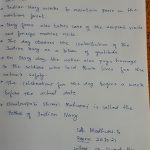 • Indian Navy works to maintain peace in the
maritime front.
• Navy force also takes care of the disputes visits
and foreign marine visits
• The day observes the contribution of the
Indian Navy as a blow of gratitude
• On Navy day, the nation also pays homage
to the soldiers who laid their lives for the
nation's safety.
• The celebration for this day begins a week
before the actual date
• Chatrapati Shivaji Maharaj is called the
father of Indian Navy
Madhavi S